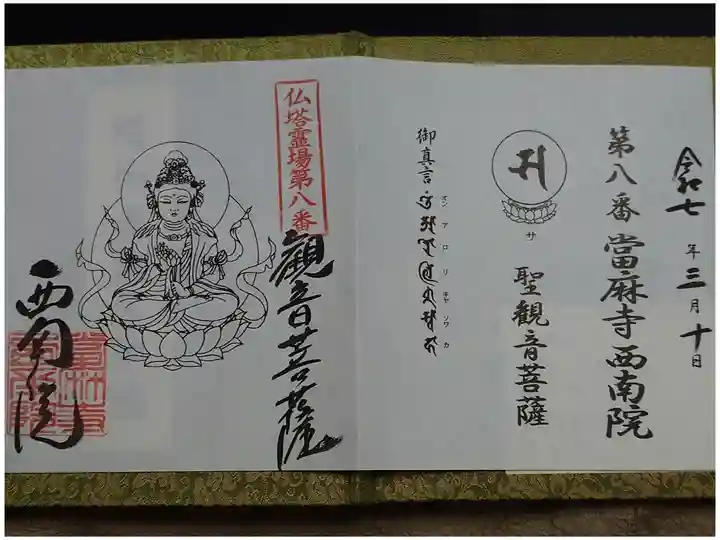 令和七年三月十日
第八番 當麻寺西南院
サ
聖観音菩薩
御真言
オン アロリキャ ソワカ
仏塔霊場第八番
観音菩薩
西南院